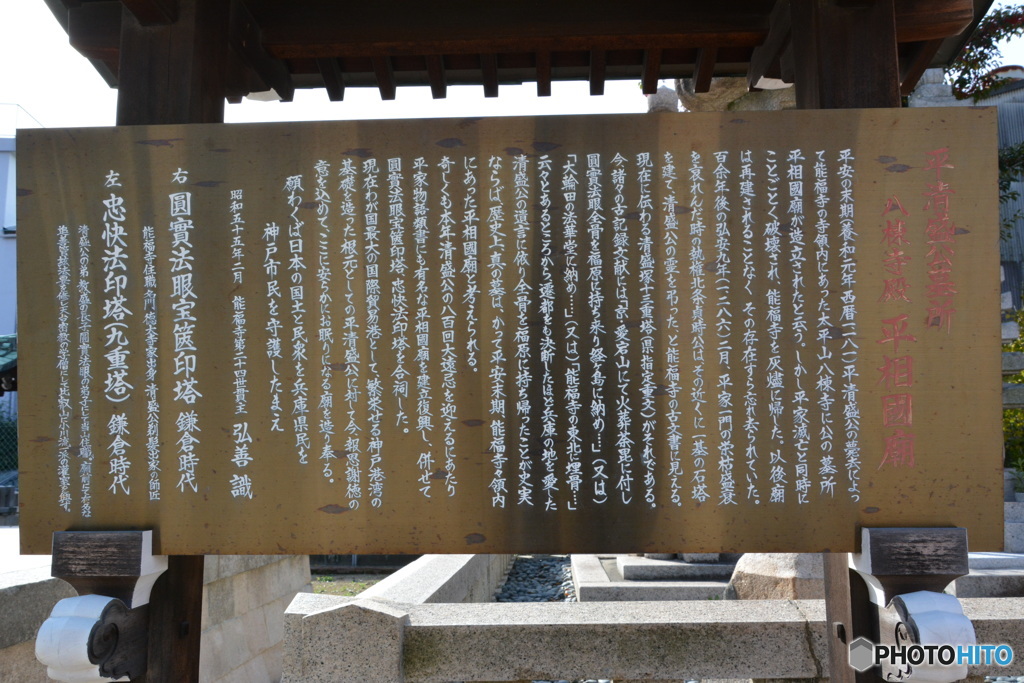 平清盛公墓所
八棟寺殿 平相國廟
平安の末期、養和元年西暦(一一八一)平清盛公の薨去によっ
て能福寺の寺領内にあった太平山八棟寺に公の墓所
平相國廟が造立されたと云う。しかし平家滅亡と同時に
ことごとく破壊され、能福寺も灰燼に帰した。以後、廟
は再建されることなく、その存在すら忘れ去られていた。
百余年後の弘安九年(一二八六)二月、平家一門の栄枯盛衰
を哀れんだ時の執権北条貞時公はその近くに一基の石塔
を建て、清盛公の霊を弔った、と能福寺の古文書に見える。
現在に伝わる清盛塚十三重塔(県指定重文)がそれである。
今、諸々の古記録文献には「京、愛宕山にて火葬茶毘に付し
圓實法眼全骨を福原に持ち来り経ヶ島に納め…」(又は)
「大輪田の法華堂に納め…」(又は)「能福寺の東北に埋骨…」
云々とあるところから遷都をも決断したほど兵庫の地を愛した
清盛公の遺言に依り全骨をご福原に持ち帰ったことが史実
ならば、歴史上、真の墓は、かつて平安末期、能福寺々領内
にあった平相國廟と考えられる。
奇しくも本年、清盛公の八百回大遠忌を迎えるにあたり
平家物語絵書にも有名な平相國廟を建立復興し、併せて
圓實法眼宝篋印塔、忠快法印塔を合祠した。
現在わが国最大の国際貿易港として、繁栄せる神戸港湾の
基礎を造った根元としての平清盛公に対して今、報恩謝徳の
竟を込めて、ここに安らかにお眠りになる廟を造り奉る。
願わくば日本の国土と民衆を兵庫県民を
神戸市民を守護したまえ
昭和五十五年二月 能福寺第二十四世貫主 弘善 識
右 圓實法眼宝篋印塔 鎌倉時代
左 忠快法印塔(九重塔) 鎌倉時代
PHOTOHITO